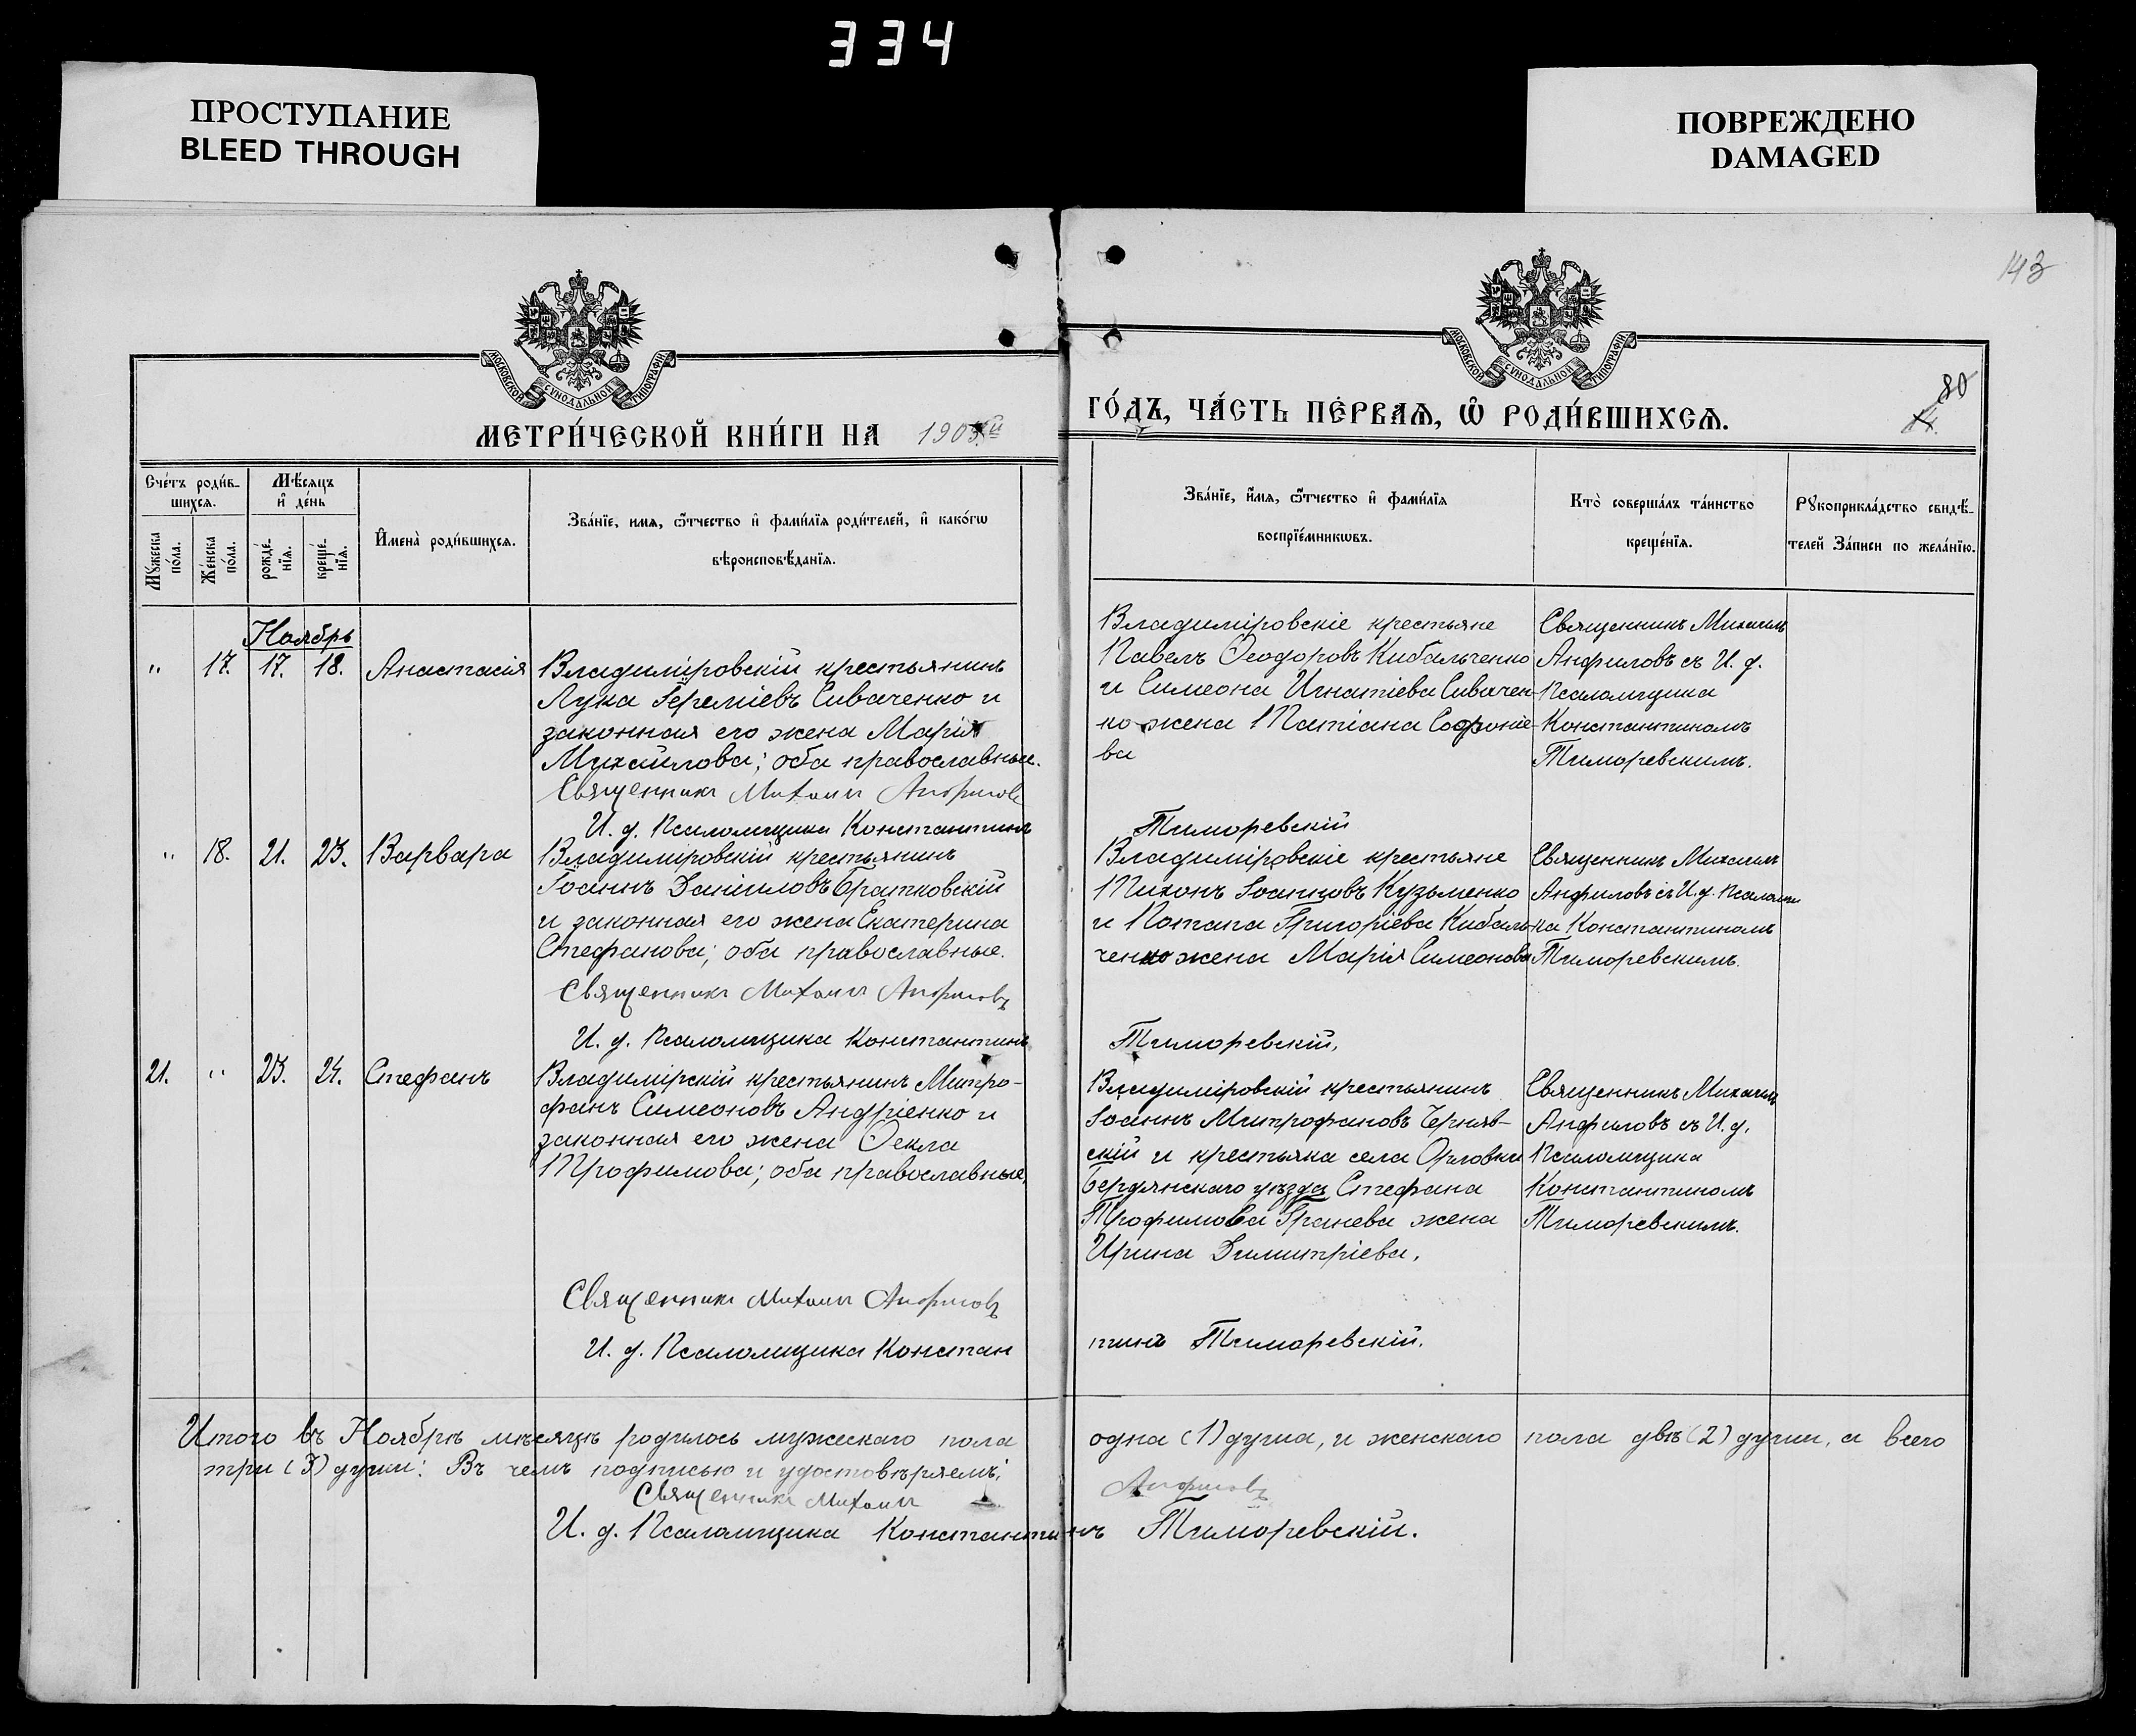 334
ПРОСТУПАНИЕ
BLEED THROUGH
ПОВРЕЖДЕНО
DAMAGED
143
МОСКОВСКОЙ СѴНОДАЛЬНОЙ ТИПОГРАФІИ
МОСКОВСКОЙ СѴНОДАЛЬНОЙ ТИПОГРАФІИ
80
МЕТРИ́ЧЕСКОЙ КНИ́ГИ НА 1905й
ГО́ДЪ, ЧА́СТЬ ПЕ́РВАѦ, Ѡ҆ РОДИ́ВШИХСѦ.
Сче́тъ роди́в-
шихсѧ.
Мѣ́сѧцъ
и҆ де́нь
Мꙋ́жеска
по́ла.
Же́нска
по́ла.
рожде́-
нїѧ.
креще́-
нїѧ.
И҆мена̀ роди́вшихсѧ.
Зва́нїе, имѧ, ѻ҆́тчество и҆ фами́лїѧ роди́телей, и҆ како́гѡ
вѣроисповѣ́данїѧ.
Зва́нїе, и҆́мѧ, ѻ҆́тчество и҆ фами́лїѧ
воспрїе́мникѡвъ.
Кто̀ соверша́лъ та́инство
креще́нїѧ.
Рꙋкоприкла́дство свидѣ́-
телей За́писи по жела́нїю.
Ноябрь
" 17. 17. 18. Анастасія
Владиміровскій крестьянинъ
Лука Іереміевъ Сиваченко и
законная его жена Марія
Михайлова; оба православные.
Священникъ Михаилъ Анфиловъ
Владиміровскіе крестьяне
Павелъ Ѳеодоровъ Кибальченко
и Симеона Игнатіева Сивачен-
ко жена Татіана Софоніе-
ва
Священникъ Михаилъ
Анфиловъ съ И. д.
Псаломщика
Константиномъ
Тиморевскимъ.
И. д. Псаломщика Константинъ Тиморевскій
" 18. 21. 23. Варвара
Владиміровскій крестьянинъ
Іоаннъ Даніиловъ Братковскій
и законная его жена Екатерина
Стефанова; оба православные.
Священникъ Михаилъ Анфиловъ
Владиміровскіе крестьяне
Тихонъ Іоанновъ Кузьменко
и Потапа Григоріева Кибаль-
ченко жена Марія Симеонова
Священникъ Михаилъ
Анфиловъ съ И. д. Псаломщи
ка Константиномъ
Тиморевскимъ.
И. д. Псаломщика Константинъ Тиморевскій,
21. " 23. 24. Стефанъ
Владимірскій крестьянинъ Митро-
фанъ Симеоновъ Андріенко и
законная его жена Ѳекла
Трофимова; оба православные,
Владиміровскій крестьянинъ
Іоаннъ Митрофановъ Черняв-
скій и крестьянка села Орловки
Бердянскаго уѣзда Стефана
Трофимова Гранева жена
Ирина Димитріева,
Священникъ Михаилъ
Анфиловъ съ И. д.
Псаломщика
Константиномъ
Тиморевскимъ.
Священникъ Михаилъ Анфиловъ
И. д. Псаломщика Констан тинъ Тиморевскій.
Итого въ Ноябрѣ мѣсяцѣ родилось мужескаго пола одна (1) душа, и женскаго пола двѣ (2) души, а всего
три (3) души: Въ чемъ подписью и удостовѣряемъ:
Священникъ Михаилъ Анфиловъ
И. д. Псаломщика Константинъ Тиморевскій.